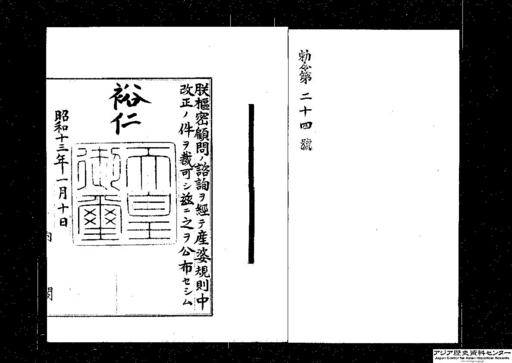 勅令第二十四號
朕樞密顧問ノ諮詢ヲ經テ産婆規則中
改正ノ件ヲ裁可シ茲ニ之ヲ公布セシム
裕仁
天皇御璽
昭和十三年一月十日
内閣
アジア歴史資料センター
Japan Center for Asian Historical Records